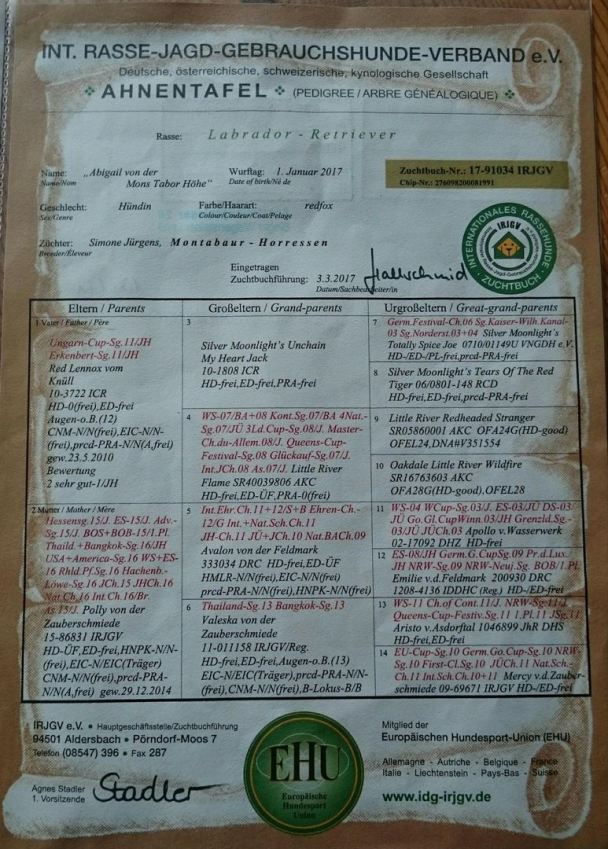 INT. RASSE-JAGD-GEBRAUCHSHUNDE-VERBAND e.V.
Deutsche, österreichische, schweizerische, kynologische Gesellschaft
AHNENTAFEL (PEDIGREE / ARBRE GÉNÉALOGIQUE)
Rasse: Labrador - Retriever
Name: „Abigail von der Wurftag: 1. Januar 2017
Name/Nom Mons Tabor Höhe" Date of birth/Né de
Zuchtbuch-Nr.: 17-91034 IRJGV
Chip-Nr.: 276098200081991
Geschlecht: Hündin Farbe/Haarart: redfox
Sex/Genre Colour/Couleur/Coat/Pelage
Züchter: Simone Jürgens, Montabaur - Horressen
Breeder/Eleveur
INTERNATIONALES RASSEHUNDE ZUCHTBUCH
IRJGV
Eingetragen
Zuchtbuchführung: 3.3.2017 Hallschmid
Datum/Sachbearbeiter/in
Eltern / Parents
1 Vater / Father / Père
Ungarn-Cup-Sg.11/JH
Erkenbert-Sg.11/JH
Red Lennox vom
Knüll
10-3722 ICR
HD-0(frei),ED-frei
Augen-o.B.(12)
CNM-N/N(frei),EIC-N/N-
(frei),prcd-PRA-N/N(A,frei)
gew.23.5.2010
Bewertung
2 sehr gut-1/JH
2 Mutter / Mother / Mère
Hessensg.15/J. ES-15/J. Adv.-
Sg.15/J. BOS+BOB-15/1.Pl.
Thaild.+Bangkok-Sg.16/JH
USA+America-Sg.16 WS+ES-
16 Rhld.Pf.Sg.16 Hachenb.-
Löwe-Sg.16 JCh.15 JHCh.16
Nat.Ch.16 Int.Ch.16/Br.
As.15/J. Polly von der
Zauberschmiede
15-86831 IRJGV
HD-ÜF,ED-frei,HNPK-N/N-
(frei),EIC-N/EIC(Träger)
CNM-N/N(frei),prcd-PRA-
N/N(A,frei) gew.29.12.2014
Großeltern / Grand-parents
3
Silver Moonlight's Unchain
My Heart Jack
10-1808 ICR
HD-frei,ED-frei,PRA-frei
4 WS-07/BA+08 Kont.Sg.07/BA 4Nat.-
Sg.07/JÜ 3Ld.Cup-Sg.08/J. Master-
Ch.du-Allem.08/J. Queens-Cup-
Festival-Sg.08 Glückauf-Sg.07/J.
Int.JCh.08 As.07/J. Little River
Flame SR40039806 AKC
HD-frei,ED-ÜF,PRA-0(frei)
5 Int.Ehr.Ch.11+12/S+B Ehren-Ch.-
12/G Int.+Nat.Sch.Ch.11
JH-Ch.11 JÜ+JCh.10 Nat.BACh.09
Avalon von der Feldmark
333034 DRC HD-frei,ED-ÜF
HMLR-N/N(frei),EIC-N/N(frei)
prcd-PRA-N/N(frei),HNPK-N/N(frei)
6 Thailand-Sg.13 Bangkok-Sg.13
Valeska von der
Zauberschmiede
11-011158 IRJGV/Reg.
HD-frei,ED-frei,Augen-o.B.(13)
EIC-N/EIC(Träger),prcd-PRA-N/N-
(frei),CNM-N/N(frei),B-Lokus-B/B
Urgroßeltern / Great-grand-parents
7 Germ.Festival-Ch.06 Sg.Kaiser-Wilh.Kanal-
03 Sg.Norderst.03+04 Silver Moonlight's
Totally Spice Joe 0710/01149U VNGDH e.V.
HD-/ED-/PL-frei,prcd-PRA-frei
8 Silver Moonlight's Tears Of The Red
Tiger 06/0801-148 RCD
HD-frei,ED-frei,prcd-PRA-frei
9 Little River Redheaded Stranger
SR05860001 AKC OFA24G(HD-good)
OFEL24,DNA#V351554
10 Oakdale Little River Wildfire
SR16763603 AKC
OFA28G(HD-good),OFEL28
11 WS-04 WCup.Sg.03/J. ES-03/JÜ DS-03/
JÜ Go.Gl.CupWinn.03/JH Grenzld.Sg.-
03/JÜ JÜCh.03 Apollo v.Wasserwerk
02-17092 DHZ HD-frei
12 ES-08/JH Germ.G.CupSg.09 Pr.d.Lux.
JH NRW-Sg.09 NRW-Neuj.Sg. BOB/1.Pl.
Emilie v.d.Feldmark 200930 DRC
1208-4136 IDDHC (Reg.) HD-/ED-frei
13 WS-11 Ch.of Cont.11/J. NRW-Sg.11/J
Queens-Cup-Festiv.Sg.11 1.Pl.11 JSg.11
Aristo v.Asdorftal 1046899 JhR DHS
HD-frei,ED-frei
14 EU-Cup-Sg.10 Germ.Go.Cup-Sg.10 NRW-
Sg.10 First-Cl.Sg.10 JÜCh.11 Nat.Sch.-
Ch.11 Int.Sch.Ch.10+11 Mercy v.d.Zauber-
schmiede 09-69671 IRJGV HD-/ED-frei
IRJGV e.V. • Hauptgeschäftsstelle/Zuchtbuchführung
94501 Aldersbach • Pörndorf-Moos 7
Telefon (08547) 396 • Fax 287
Agnes Stadler Stadler
1. Vorsitzende
EHU
Europäische
Hundesport
Union
Mitglied der
Europäischen Hundesport-Union (EHU)
Allemagne - Autriche - Belgique - France
Italie - Liechtenstein - Pays-Bas - Suisse
www.idg-irjgv.de